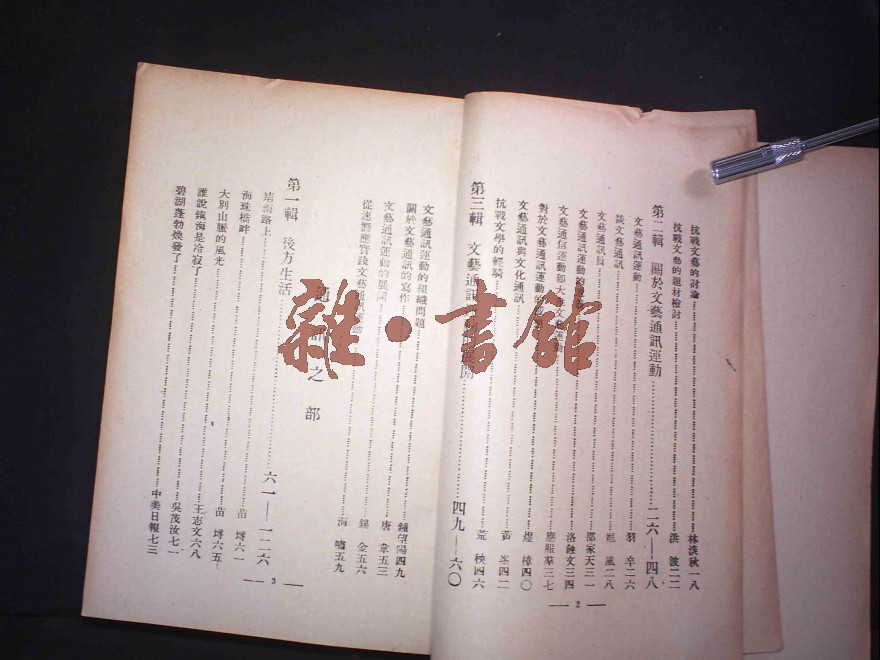 抗戰文藝的討論……林淡秋一八
抗戰文藝的題材檢討……洪 波二二
第二輯 關於文藝通訊運動……二六—四八
文藝通訊運動……羽 辛二六
談文藝通訊……風二八
文藝通訊員……邵家天三一
文藝通訊運動的……洛蝕文三四
文藝通信運動即大……文藝……應服羣三七
對於文藝通訊運動的……煌 樟四〇
文藝通訊與文化通訊……黃 峯四二
抗戰文學的輕騎……荒 秧四六
第三輯 文藝通訊……展開……四九—六〇
— 2 —
文藝通訊運動的組織問題……鍾望陽四九
關於文藝通訊的寫作……唐 韋五三
文藝通訊運動的展開……錫 金五六
從速響應實踐文藝通訊……動……海 嘯五九
通 訊 之 部
第一輯 後方生活……六一—一二六
靖海路上……苗 埒六一
海珠橋畔……苗 埒六五
大別山脈的風光……王志文六八
誰說鎮海是冷寂了……吳茂汝七一
碧湖蓬勃煥發了……中美日報七三
— 3 —
雜·書館